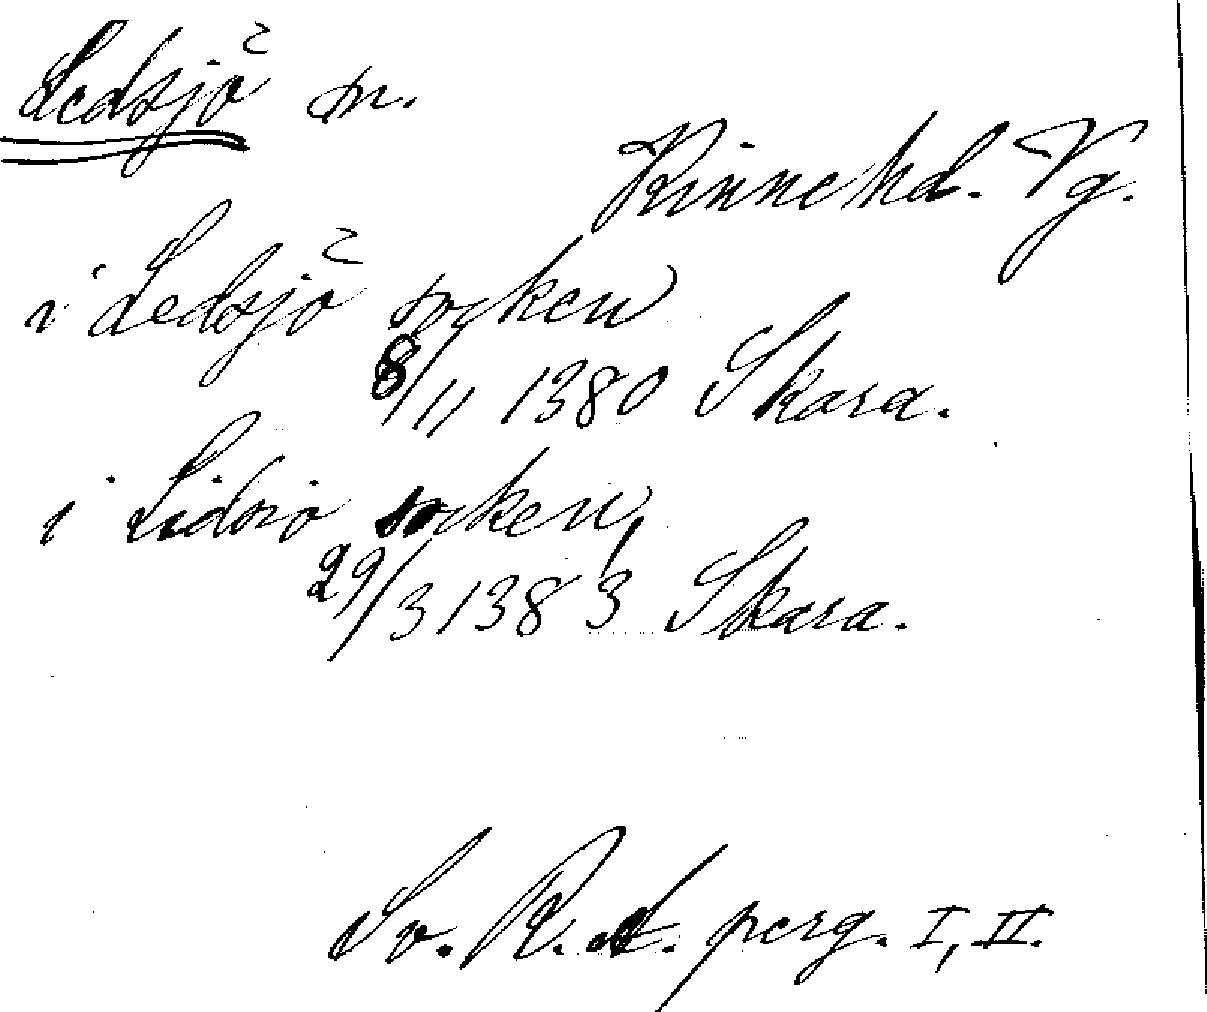 Ledsjö sn.
Kinne hd. Vg.
i Ledsjö socken
8/11 1380 Skara.
i Lidsio socken,
29/3 1383 Skara.
Sv. R. A. perg. I, II.